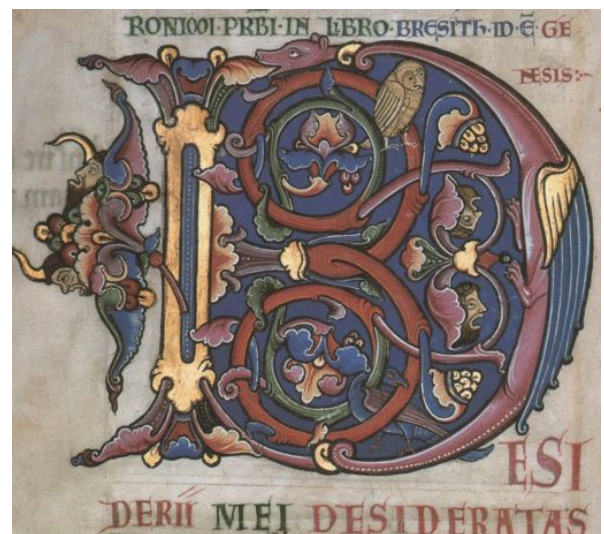 RONIMI·PRBI·IN LIBRO·BRESITH·ID·Ē·GE
NESIS:
D
ESI
DERII MEI DESIDERATAS